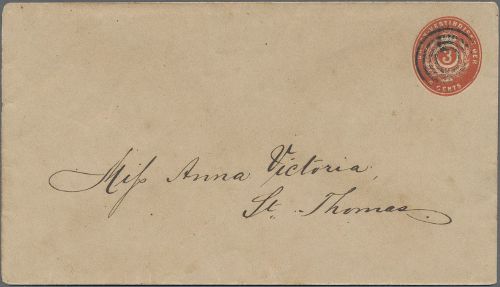 3
CENTS
Miss Anna Victoria,
St. Thomas.